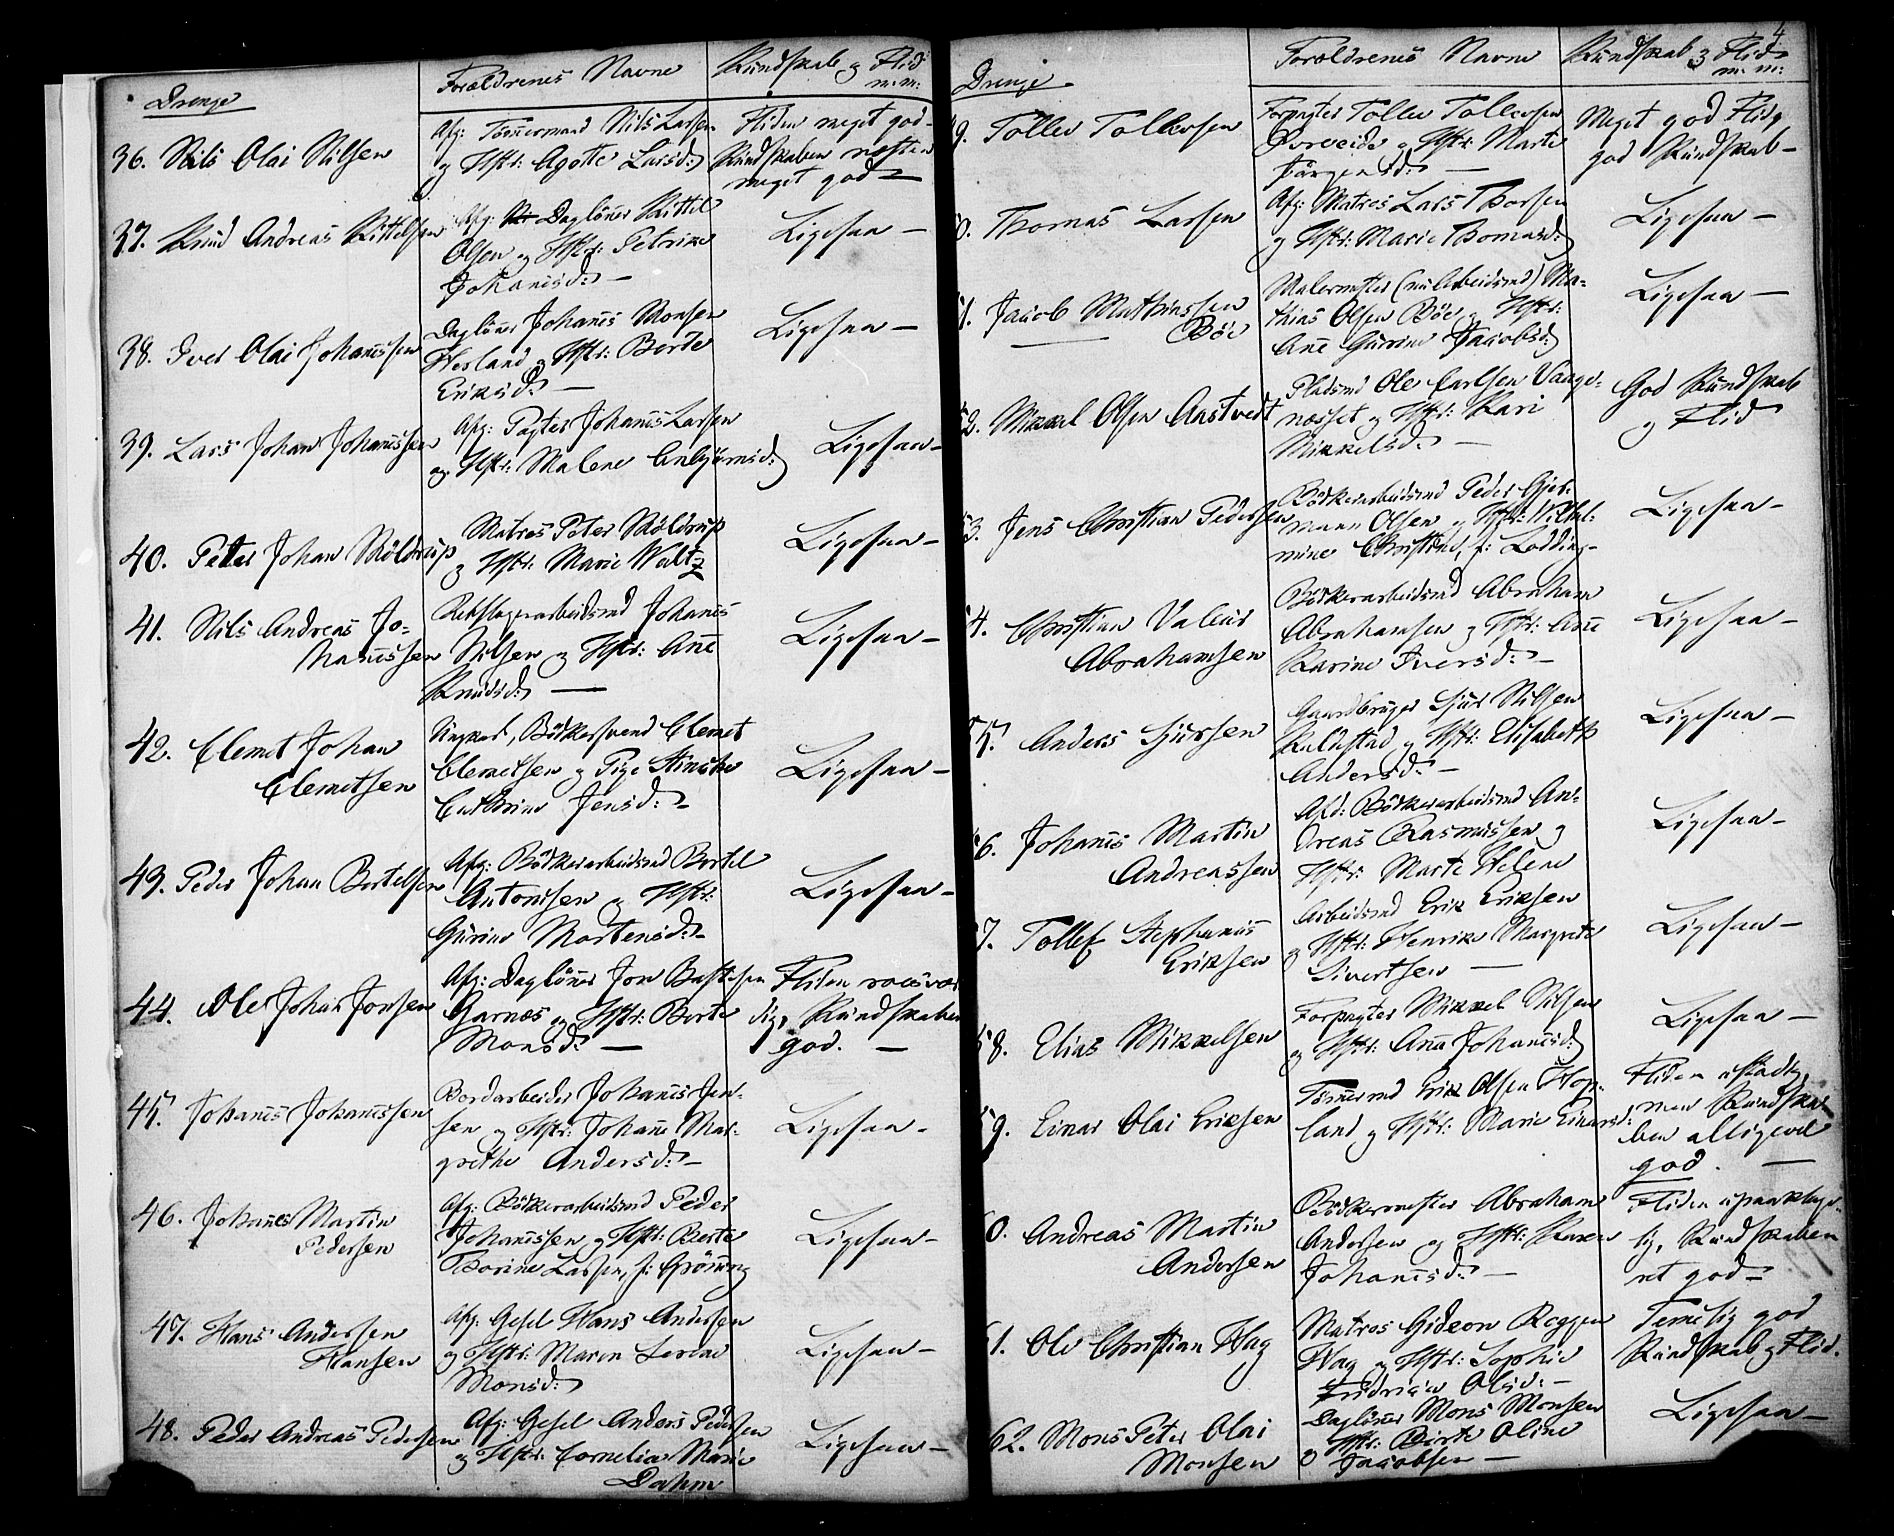 Drenge
Forældrenes Navne
Kundskab og Flid
m: m:
36. Nils Olai Nilsen
Afg: Tømmermand Nils Larsen
og Hstr: Agotte Larsd:
Fliden meget god
Kundskaben næsten
meget god
37. Knud Andreas Kittelsen
Afg: Daglönner Kittel
Olsen og Hstr: Petrine
Johannesd: —
Ligesaa —
38. Iver Olai Johannessen
Daglönner Johannes Monsen
Hesland og Hstr: Berte
Eriksd: —
Ligesaa —
39. Lars Johan Johannessen
Afg: Pagter Johannes Larsen
og Hstr: Malene Anbjørnsd:
Ligesaa —
40. Peter Johan Möldrup
Matros Peter Möldrup
og Hstr: Marie Waltz
Ligesaa —
41. Nils Andreas Jo-
hannessen
Rebslagerarbeidsmd Johannes
Nilsen og Hstr: Ane
Knudsd: —
Ligesaa —
42. Clemet Johan
Clemetsen
Ungkarl, Bödkersvend Clemet
Clemetsen og Pige
Cathrine Jensd: —
Ligesaa —
43. Peder Johan Bertelsen
Afg: Bödkerarbeidsmd Bertel
Antonisen og Hstr:
Gurine Mortensd: —
Ligesaa —
44. Ole Johan Jonsen
Afg: Daglönner Jon Bastesen
Garnæs og Hstr: Berte
Monsd: —
Fliden roesvær-
dig, Kundskaben
god. —
45. Johannes Johannessen
Bordarbeider Johannes Jen-
sen og Hstr: Johanne Mar-
grethe Andersd: —
Ligesaa —
46. Johannes Martin
Pedersen
Afg: Bödkerarbeidsmd Peder
Johannessen og Hstr: Berte
Thorine Larsen, f: Grönning
Ligesaa —
47. Hans Andersen
Hansen
Afg: Gesel Hans Andersen
og Hstr: Maren Lerine
Monsd:
Ligesaa —
48. Peder Andreas Pedersen
Afg: Gesel Anders Pedersen
og Hstr: Cornelia Marie
Dahm
Ligesaa —
4
Drenge
Forældrenes Navne
Kundskab og Flid
m: m:
9. Tollev Tollevsen
Forpagter Tollev Tollevsen
og Hstr: Marte
Jörgensd: —
Meget god Flid og
god Kundskab —
0. Thomas Larsen
Afg: Matros Lars Thorsen
og Hstr: Marie Thomasd:
Ligesaa —
1. Jacob Mathiassen
Böe
Malermester (nu Arbeidsmd) Ma-
thias Olsen Böe og Hstr:
Ane Gurine Jacobsd:
Ligesaa —
2. Mikkel Olsen Aastvedt
Pladsmd Ole Carlsen Vaage-
næsset og Hstr: Kari
Mikkelsd: —
God Kundskab
og Flid
3. Jens Christian Pedersen
Bödkerarbeidsmd Peder Gjer-
mann Olsen og Hstr: Wilhel-
mine Christine, f: Lodding —
Ligesaa —
4. Christian Valeur
Abrahamsen
Bödkerarbeidsmd Abraham
Abrahamsen og Hstr: Ane
Karine Iversd: —
Ligesaa —
5. Anders Sjursen
Gaardbruger Sjur Nilsen
Kaldestad og Hstr: Elisabeth
Andersd: —
Ligesaa —
56. Johannes Martin
Andreassen
Afd: Bödkerarbeidsmd An-
dreas Rasmussen og
Hstr: Marte Helene
Ligesaa —
7. Tollef Stephanus
Eriksen
Arbeidsmd Erik Eriksen
og Hstr: Henrike Margrete
Sivertsen —
Ligesaa —
58. Elias Mikkelsen
Forpagter Mikkel Nilsen
og Hstr: Anna Johannesd:
Ligesaa —
59. Einar Olai Eriksen
Tømmermd Erik Olsen Hop-
land og Hstr: Marie Einarsd:
Fliden ustadig,
men Kundska-
ben alligevel
god. —
0. Andreas Martin
Andersen
Bödkermester Abraham
Andersen og Hstr: Karen
Johannesd: —
Fliden upaaklage-
lig, Kundskaben
ret god —
1. Ole Christian Hag
Matros Gideon Roggen
Hag og Hstr: Sophie
Fredrikke Olsd: —
Temelig god
Kundskab og Flid.
62. Mons Peter Olai
Monsen
Daglönner Mons Monsen
og Hstr: Birte Oline
Jacobsen —
Ligesaa —